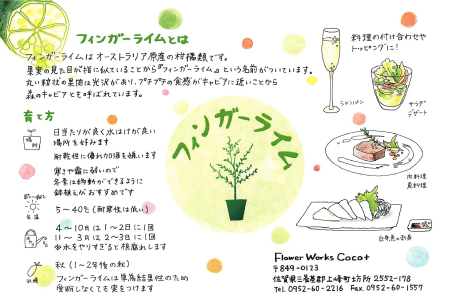 フィンガーライムとは
フィンガーライムは オーストラリア原産の柑橘類です。
果実の見た目が指に似ていることから『フィンガーライム』という名前がついています。
丸い粒状の果肉は光沢があり、プチプチの食感がキャビアに近いことから
森のキャビアとも呼ばれています。
育て方
場所
日当たりが良く水はけが良い
場所を好みます
耐乾性に優れ加湿を嫌います
寒さや霜に弱いので
冬季は移動ができるように
鉢植えがおすすめです
気温
5〜40℃(耐寒性は低い)
4〜10月は 1〜2日に1回
11〜3月は 2〜3日に1回
※水をやりすぎると根腐れします
収穫
秋 (1〜2年後の秋)
フィンガーライムは単為結果性のため
受粉しなくても実をつけます
フィンガーライム
料理の付け合わせや
トッピングに!
シャンパン
サラダ
デザート
肉料理
魚料理
白身魚の刺身
Flower Works Coco+
〒849-0123
佐賀県三養基郡上峰町大字坊所 2552-178
Tel 0952-60-2216 Fax 0952-60-1557